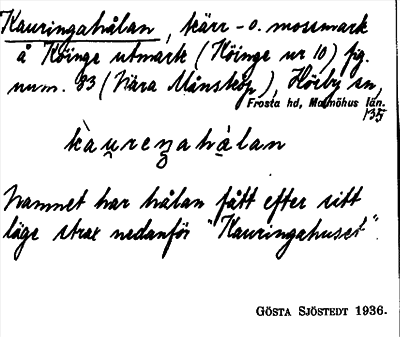 Kauringahålan, kärr- o. mossmark
å Köinge utmark (Köinge nr 10) fig.
num. 83 (Nära Månskop), Hörby sn,
Frosta hd, Malmöhus län.
135
kaureŋahålan
Namnet har hålan fått efter sitt
läge strax nedanför "Kauringahuset".
GÖSTA SJÖSTEDT 1936.